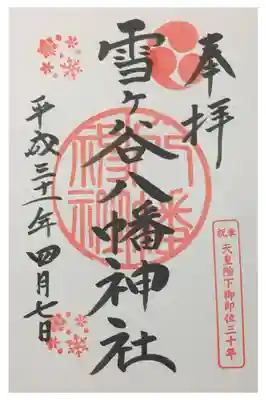 奉拝
雪ヶ谷八幡神社
平成三十一年四月七日
奉祝 天皇陛下御即位三十年